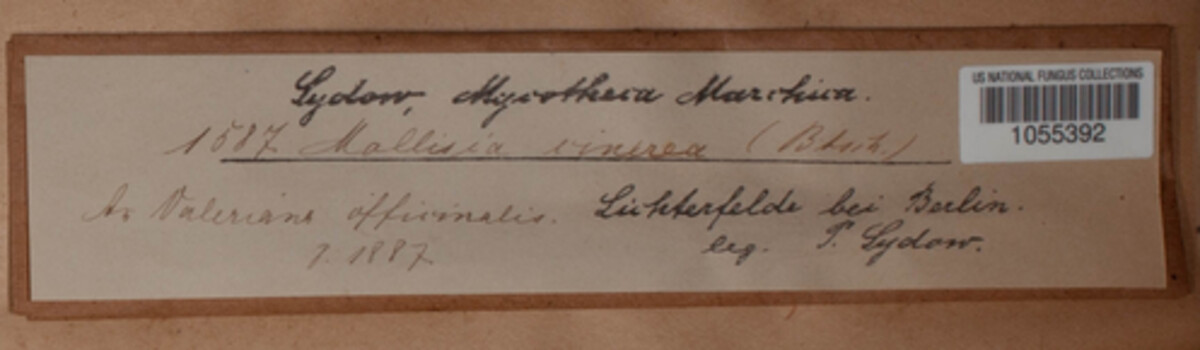 Sydow, Mycotheca Marchica.
1587 Mollisia cinerea (Btsch.)
An Valeriana officinalis. Lichterfelde bei Berlin.
7. 1887. leg. P. Sydow.
US NATIONAL FUNGUS COLLECTIONS
1055392